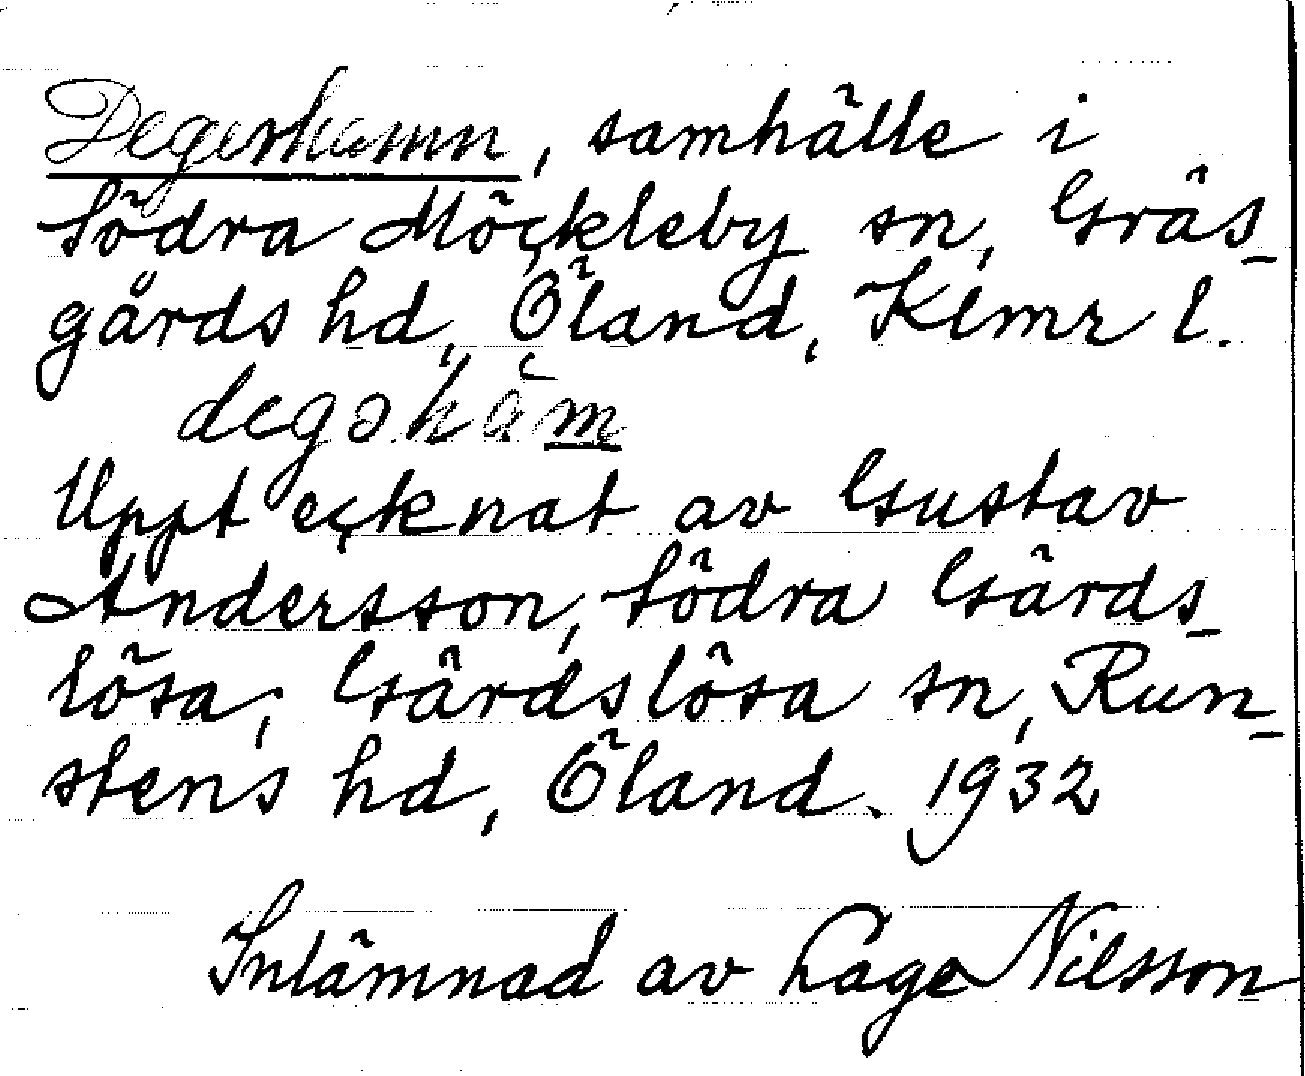 Degerhamn, samhälle i
Södra Möckleby sn, Gräs-
gårds hd, Öland, Klmr l.
Uppt ecknat av Gustav
Andersson, Södra Gärds-
lösa, Gärdslösa sn, Run-
stens hd, Öland. 1932
Inlämnad av Lage Nilsson